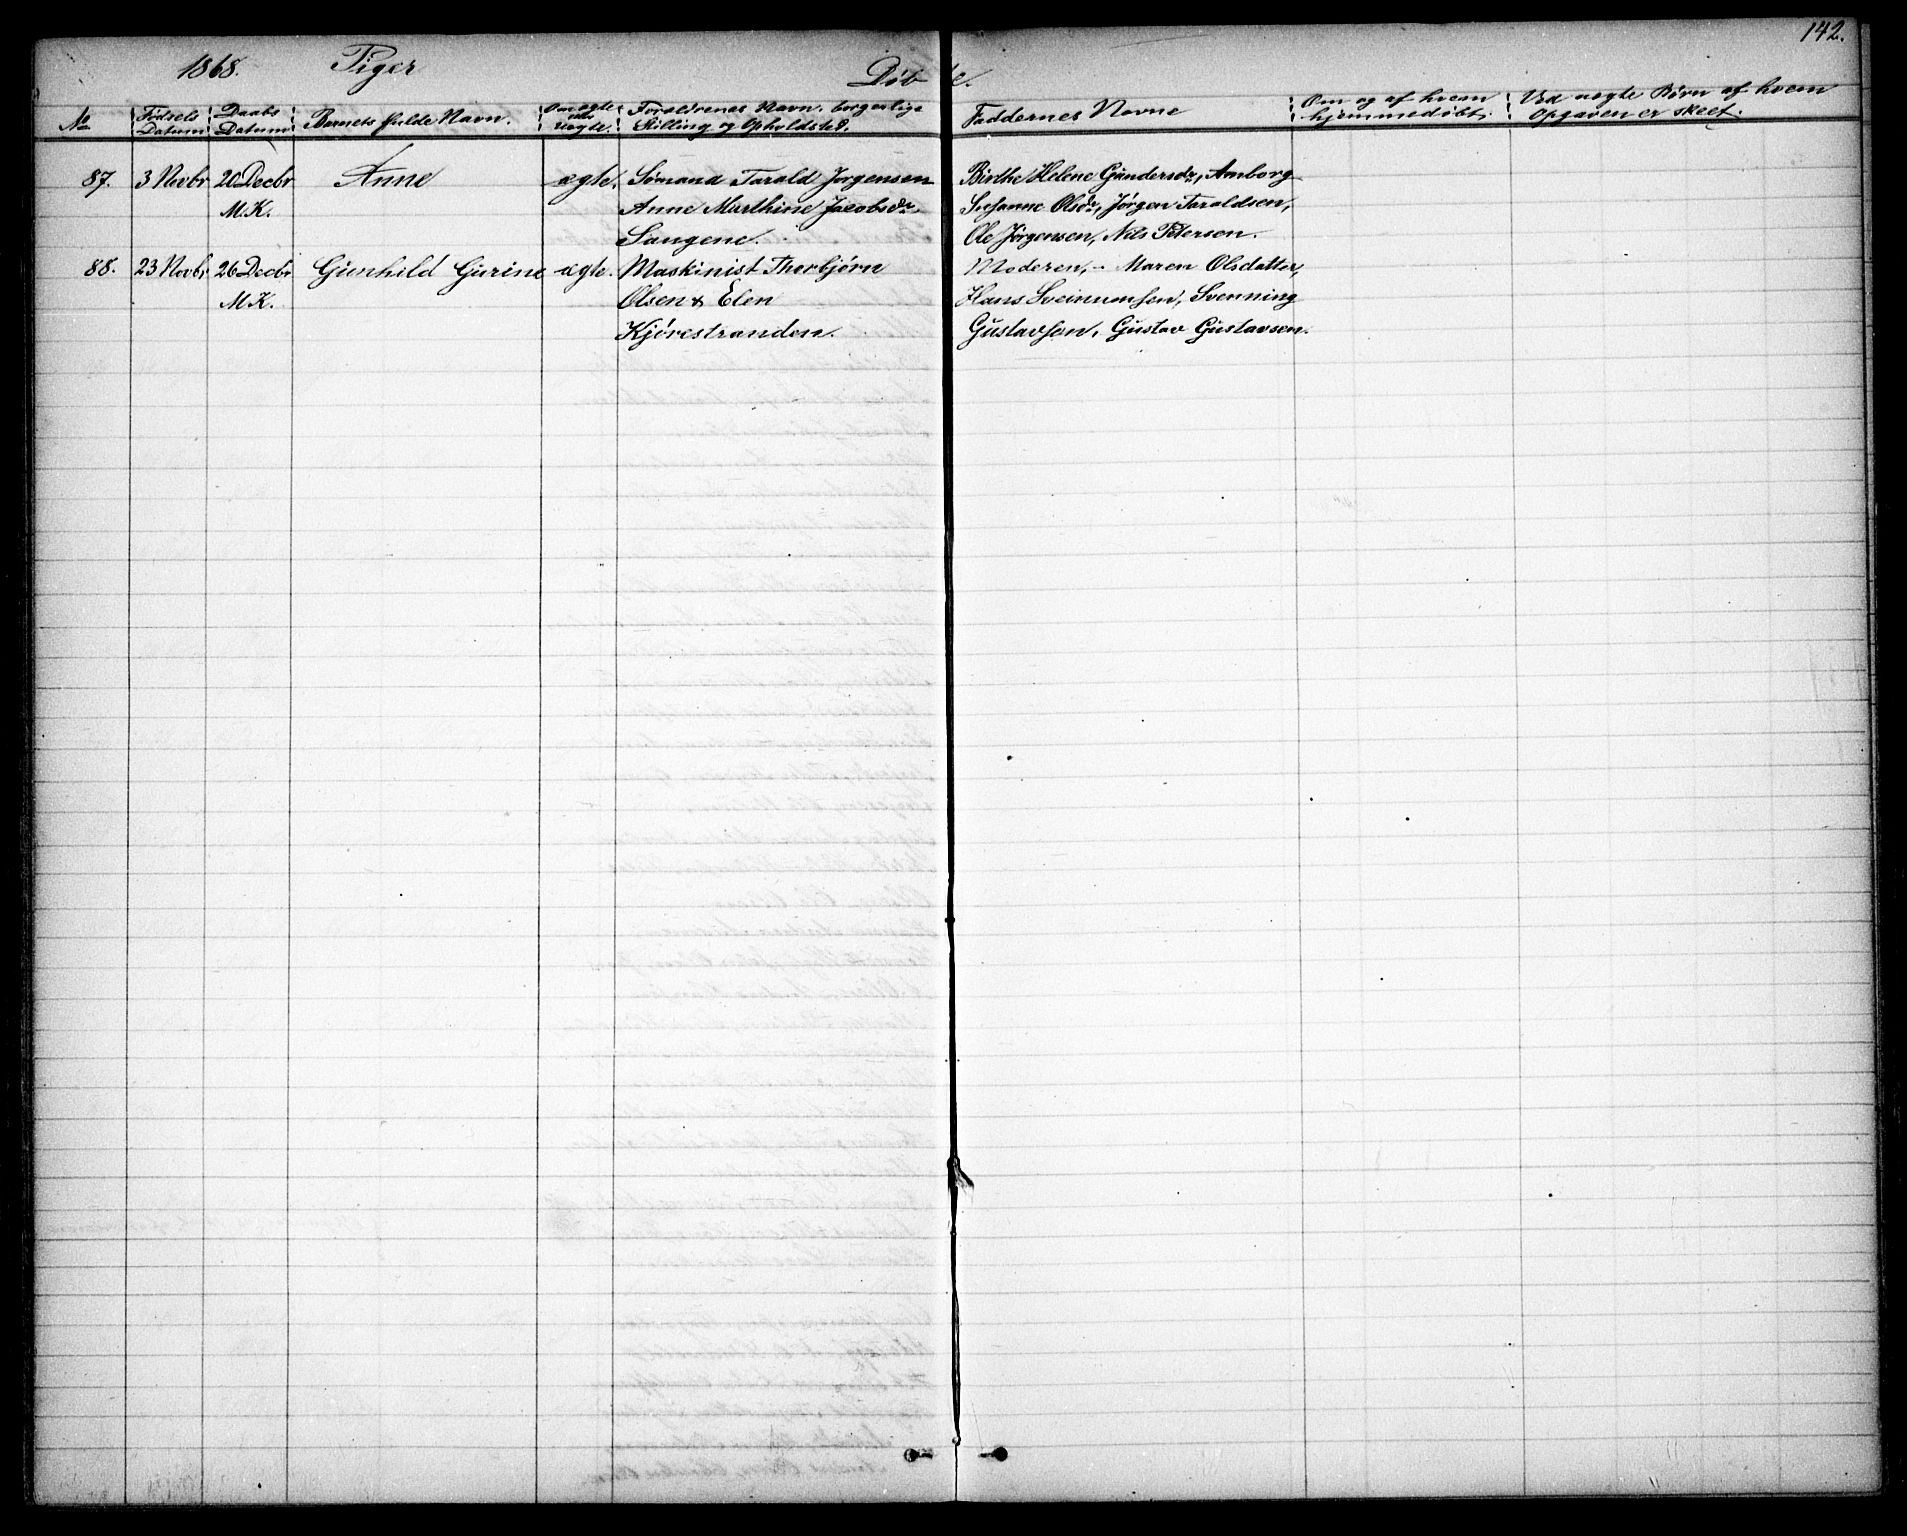 142.
1868. Piger Døbte.
No Fødsels Datum Daabs Datum Barnets fulde Navn. Om ægte eller uægte. Forældrenes Navn, borgerlige Stilling og Opholdsted. Faddernes Navne Om og af hvem hjemmedøbt. Ved uegte Børn af hvem Opgaven er skeet.
87. 3 Novbr 20 Decbr Anne ægte. Sømand Tarald Jørgensen Birthe Helene Gundersdr, Amborg
M.K. Anne Marthine Jacobsdr. Susanne Olsdr, Jørgen Taraldsen,
Sangene. Ole Jørgensen, Nils Petersen.
88. 23 Novbr 26 Decbr Gunhild Gurine ægte. Maskinist Thorbjørn Moderen, Maren Olsdatter,
M.K. Olsen & Elen Hans Sveinumsen, Svenning
Kjørestranden. Gustavsen, Gustav Gustavsen.